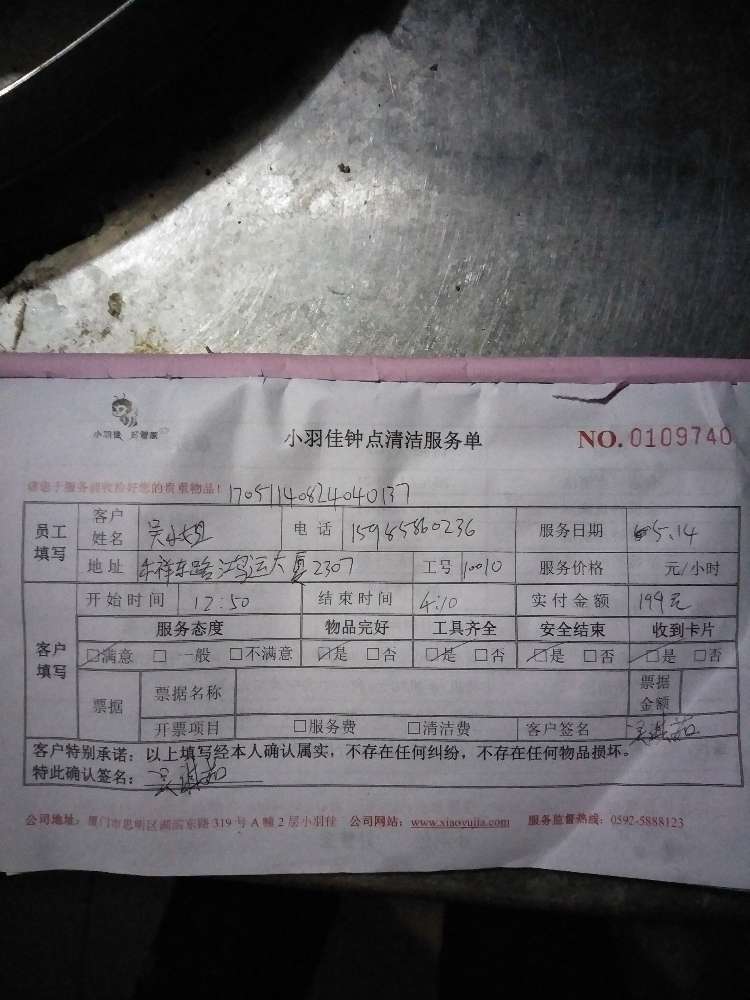 小羽佳 好管家
小羽佳钟点清洁服务单
NO. 0109740
请您于服务前收捡好您的贵重物品！
170511408240401 37
员工填写 客户姓名 吴小姐 电话 15985860236 服务日期 5.14
地址 祥东路江鸿运大厦2307 工号 10010 服务价格 元/小时
客户填写 开始时间 12:50 结束时间 4:10 实付金额 194元
服务态度 物品完好 工具齐全 安全结束 收到卡片
☑满意 □一般 □不满意 ☑是 □否 ☑是 □否 ☑是 □否 ☑是 □否
票据 票据名称 票据金额
开票项目 □服务费 □清洁费 客户签名
客户特别承诺：以上填写经本人确认属实，不存在任何纠纷，不存在任何物品损坏。
特此确认签名：
公司地址：厦门市思明区湖滨东路 319 号 A 幢 2 层小羽佳 公司网站：www.xiaoyujia.com 服务监督热线：0592-5888123